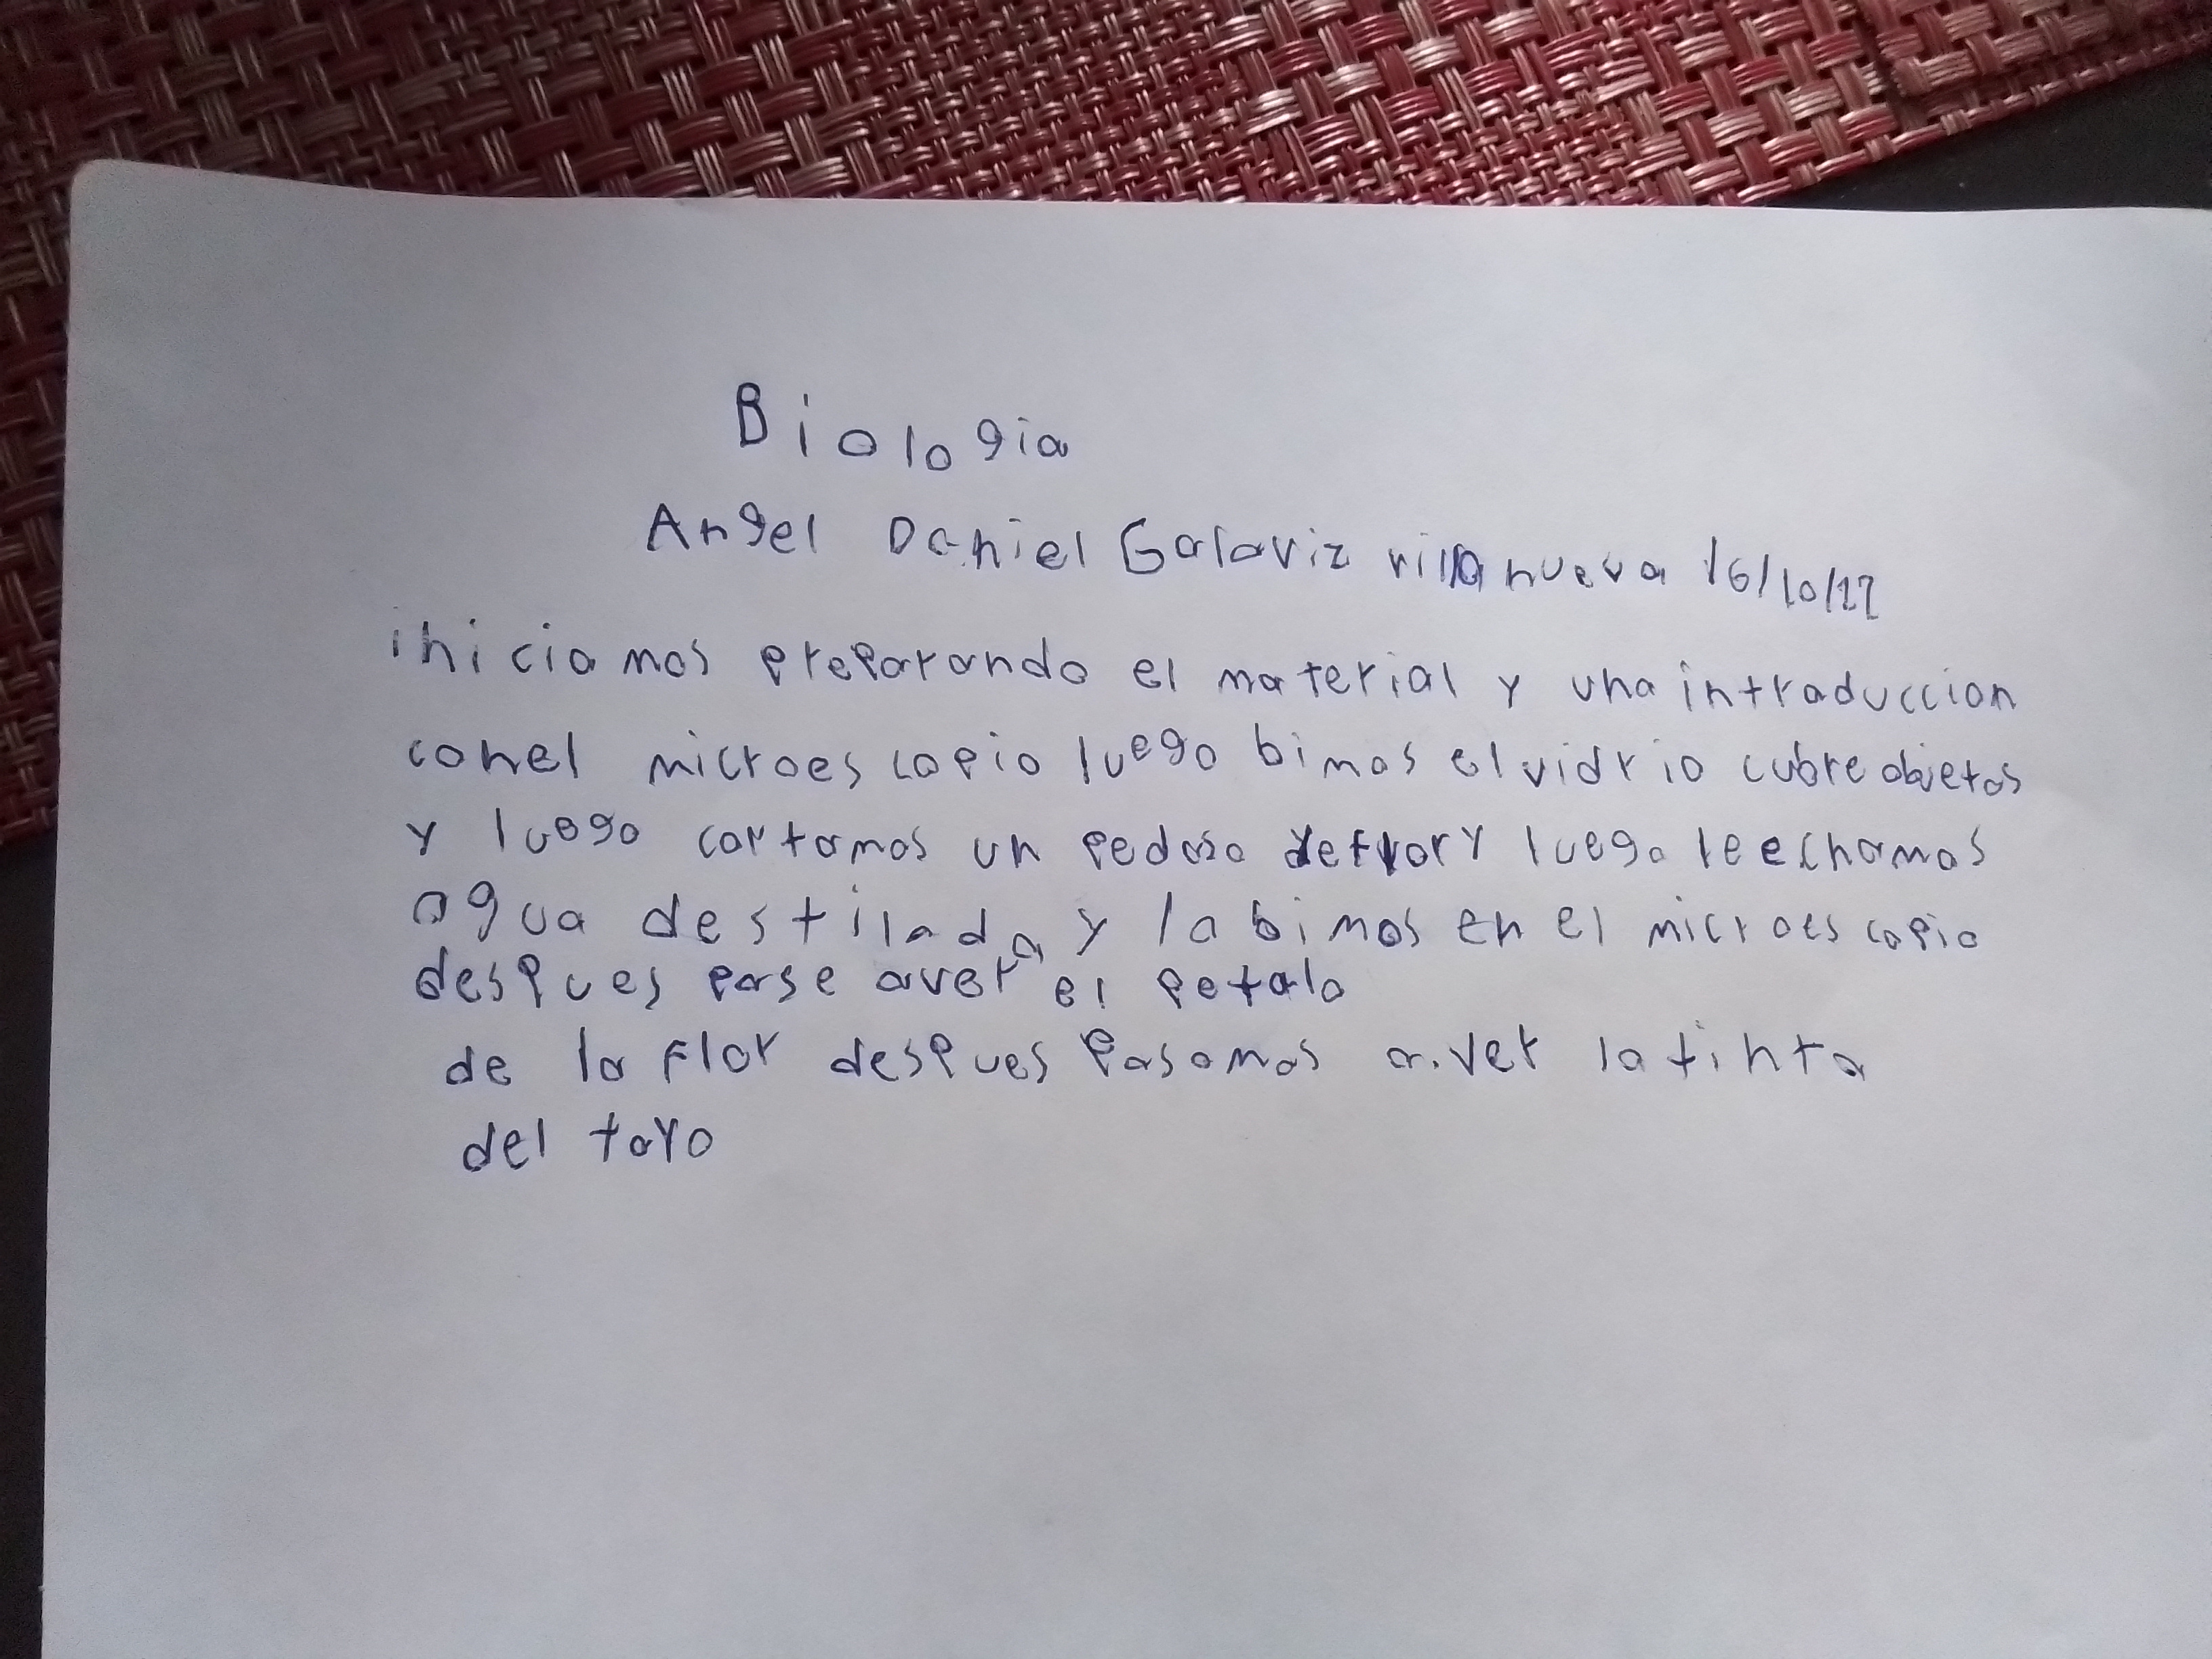 Biologia
Angel Daniel Galaviz villanueva 16/10/22
iniciamos preparando el material y una introduccion
conel microes copio luego bimos el vidrio cubre objetos
y luego cortamos un pedaso de flor y luego le echamos
agua destilada y la bimos en el microes copio
despues pase aver el petalo
de la flor despues pasamos a ver la tinta
del tayo